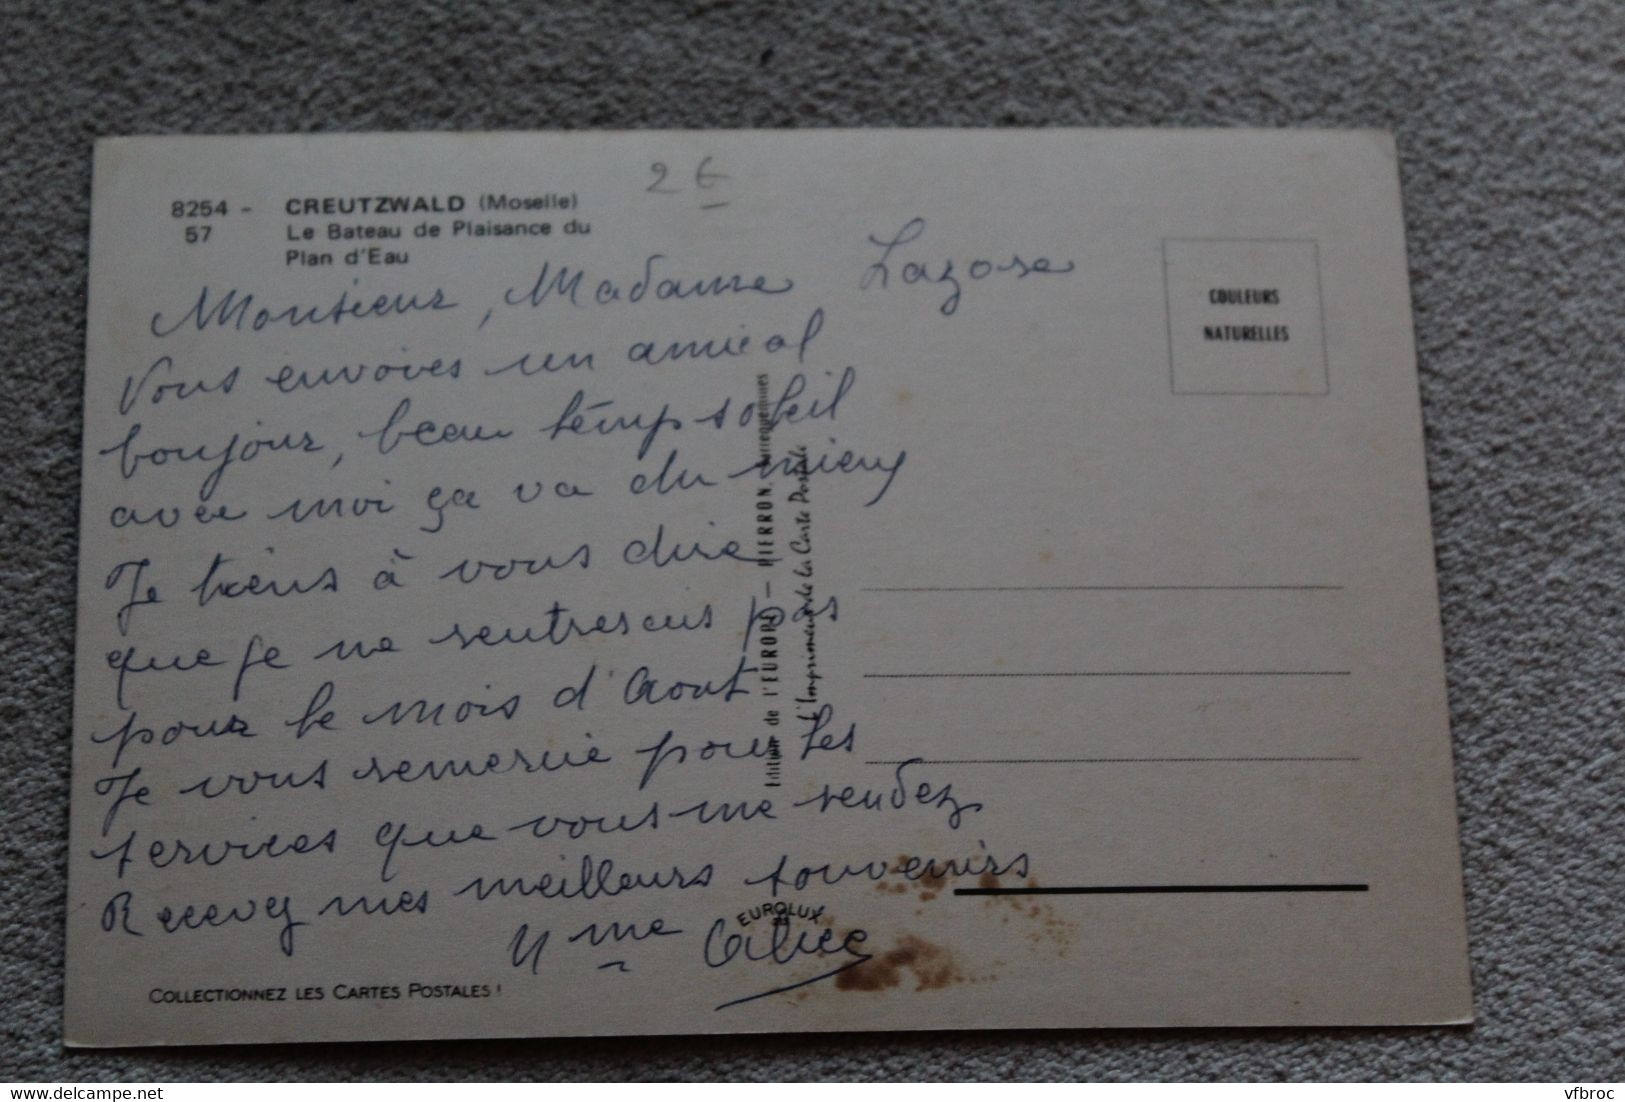 2 €
8254 - CREUTZWALD (Moselle)
57 Le Bateau de Plaisance du
Plan d'Eau
Monsieur, Madame Lazare
Vous envoies un amical
bonjour, beau temp soleil
avec moi ça va du mieux
Je tiens à vous dire
que je ne rentrerais pas
pour le mois d'Aout
Je vous remercie pour les
services que vous me rendez
Recevez mes meilleurs souvenirs
Mme Alice
COULEURS
NATURELLES
Edition de l'EUROPE — PIERRON, Sarreguemines
L'Imprimeur de la Carte Postale
EUROLUX
COLLECTIONNEZ LES CARTES POSTALES !
delcampe.net
vfbroc